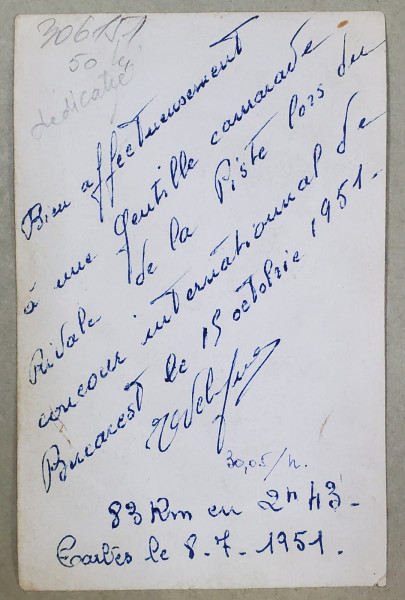 306151
50
dedicatie
Bien affectueusement
à une gentille camarade
Rivale de la Piste lors du
concour internationnal de
Bucarest le 15 octobre 1951.
30,05/h.
83 Km en 2h 43 -
Tarbes le 8-7-1951.